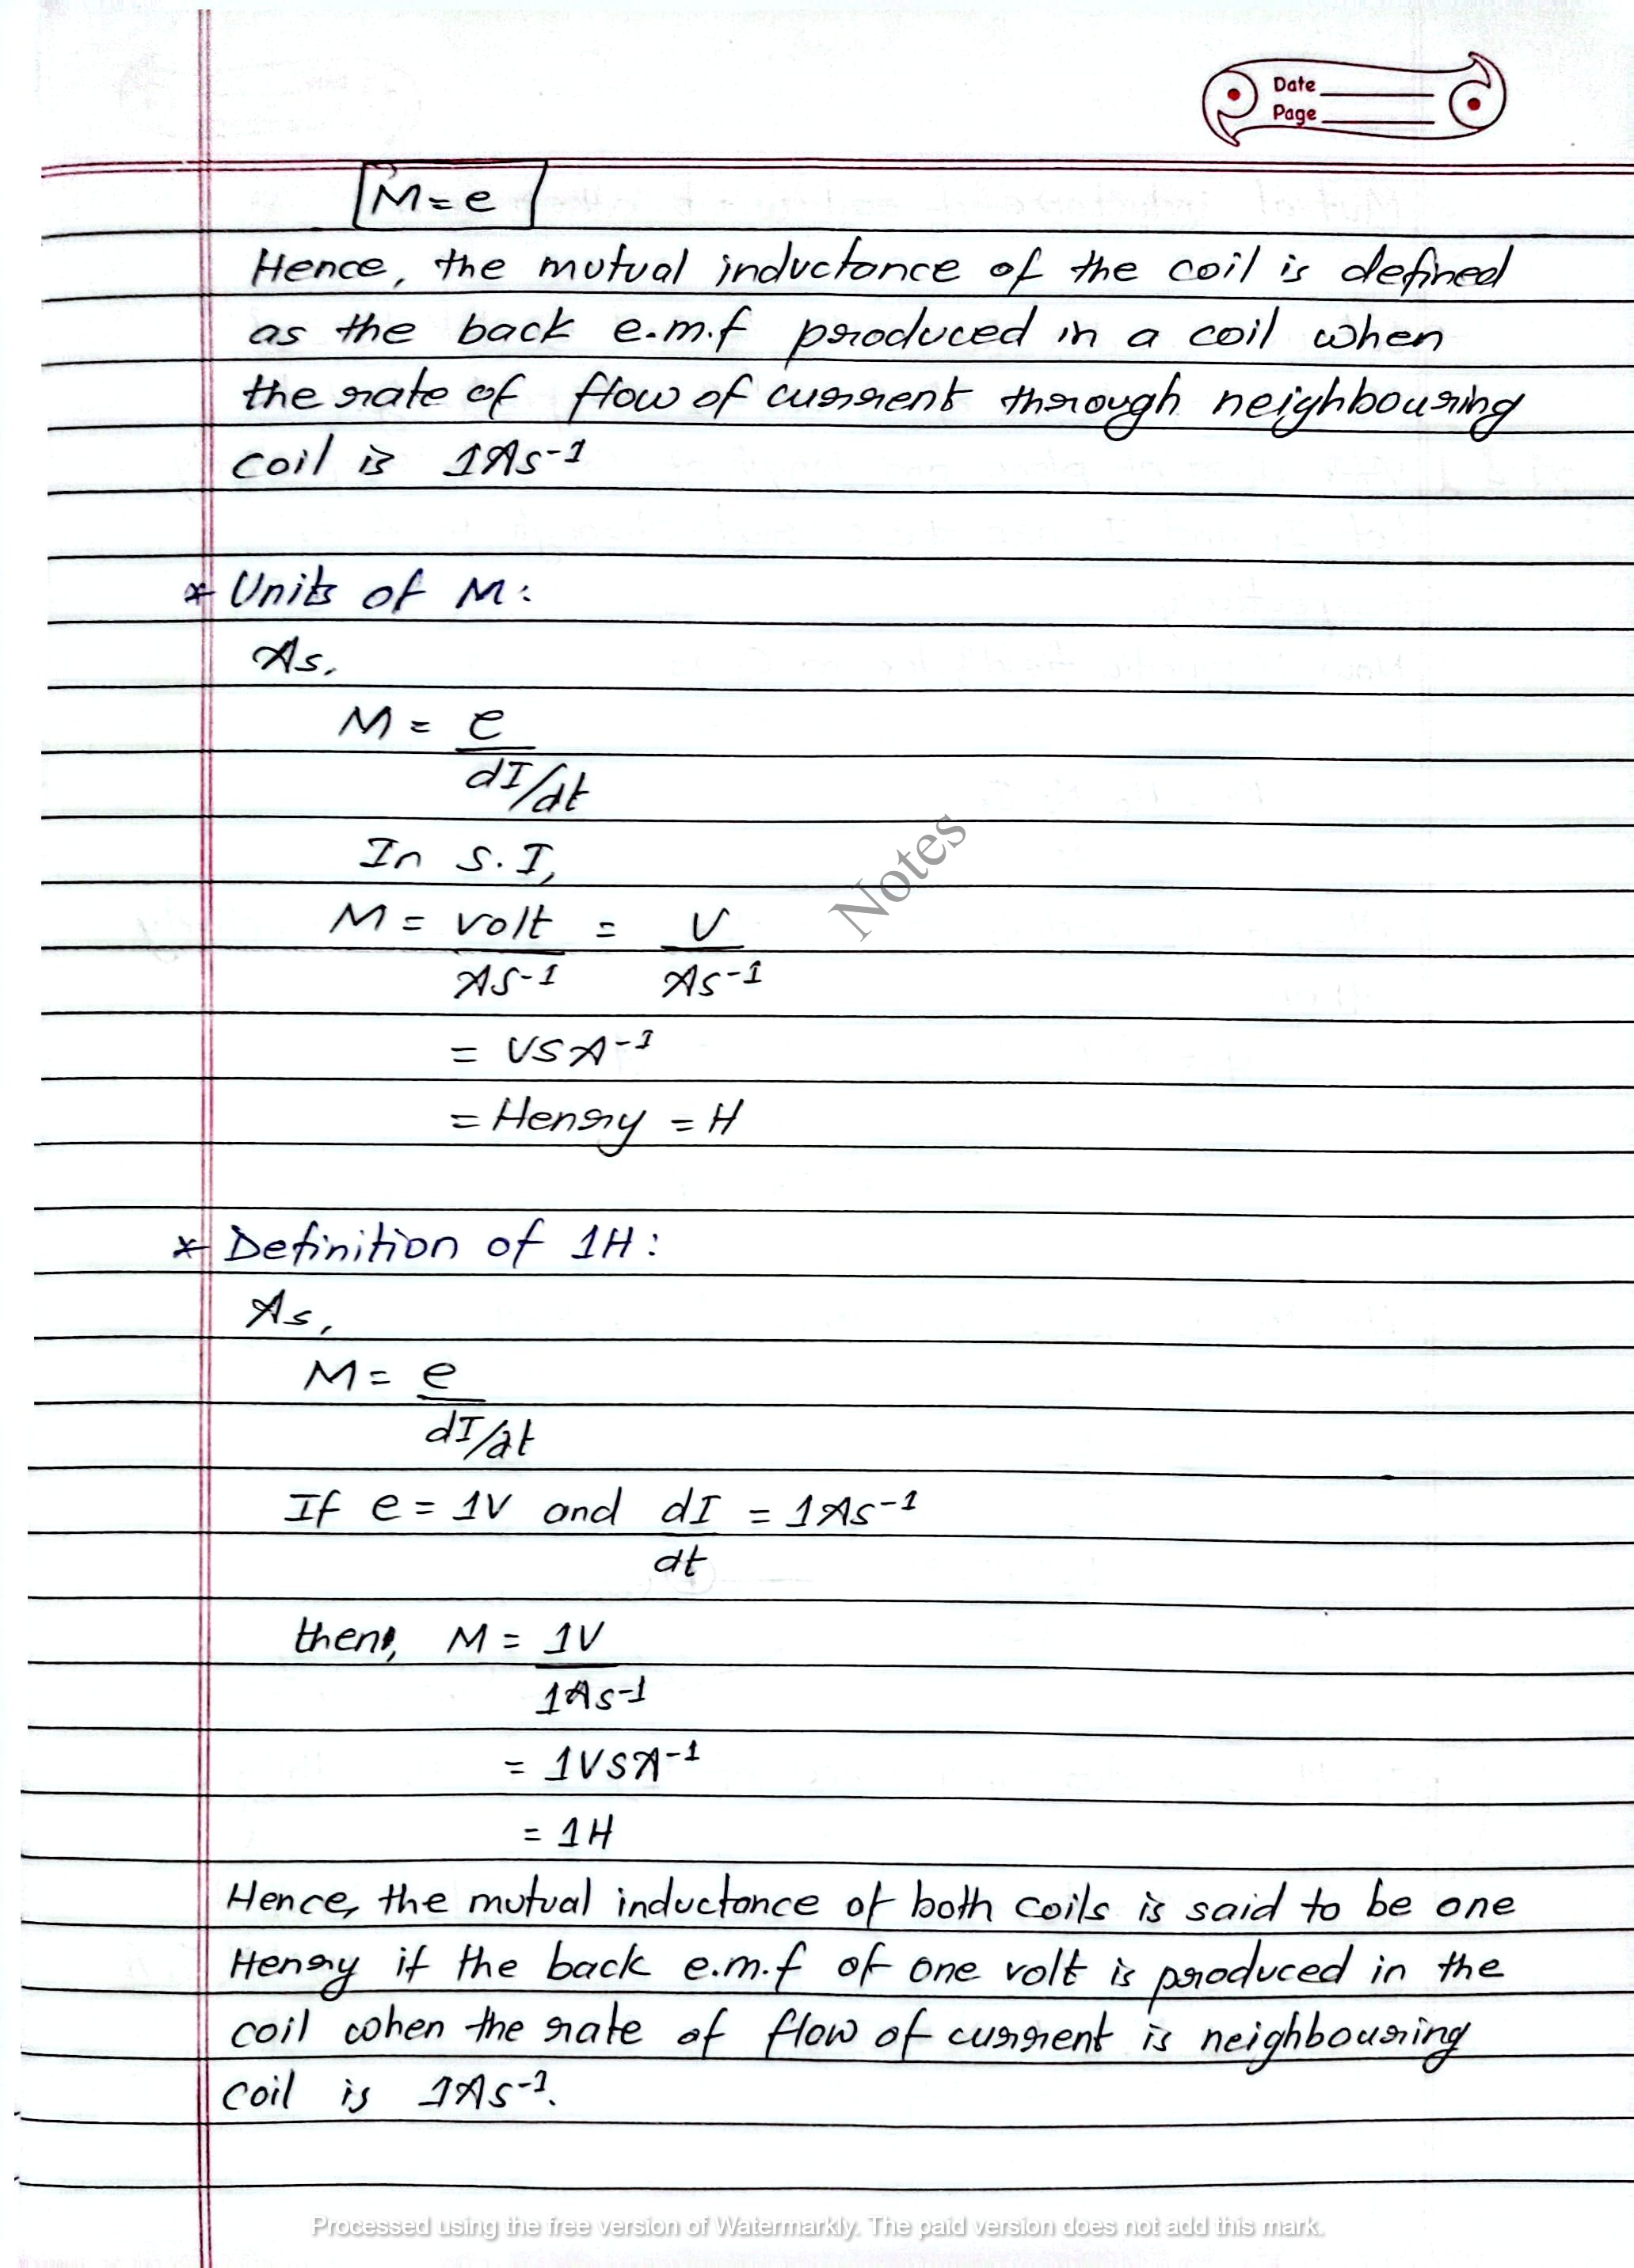 Date
Page
M = e
Hence, the mutual inductance of the coil is defined
as the back e.m.f produced in a coil when
the rate of flow of current through neighbouring
coil is 1As⁻¹
* Units of M:
As,
M = e
dI/dt
In S.I,
M = volt = V
AS⁻¹ As⁻¹
= VSA⁻¹
= Henry = H
Notes
* Definition of 1H:
As,
M = e
dI/dt
If e = 1V and dI = 1As⁻¹
dt
then, M = 1V
1As⁻¹
= 1VSA⁻¹
= 1H
Hence, the mutual inductance of both coils is said to be one
Henry if the back e.m.f of one volt is produced in the
coil when the rate of flow of current is neighbouring
coil is 1As⁻¹.
Processed using the free version of Watermarkly. The paid version does not add this mark.